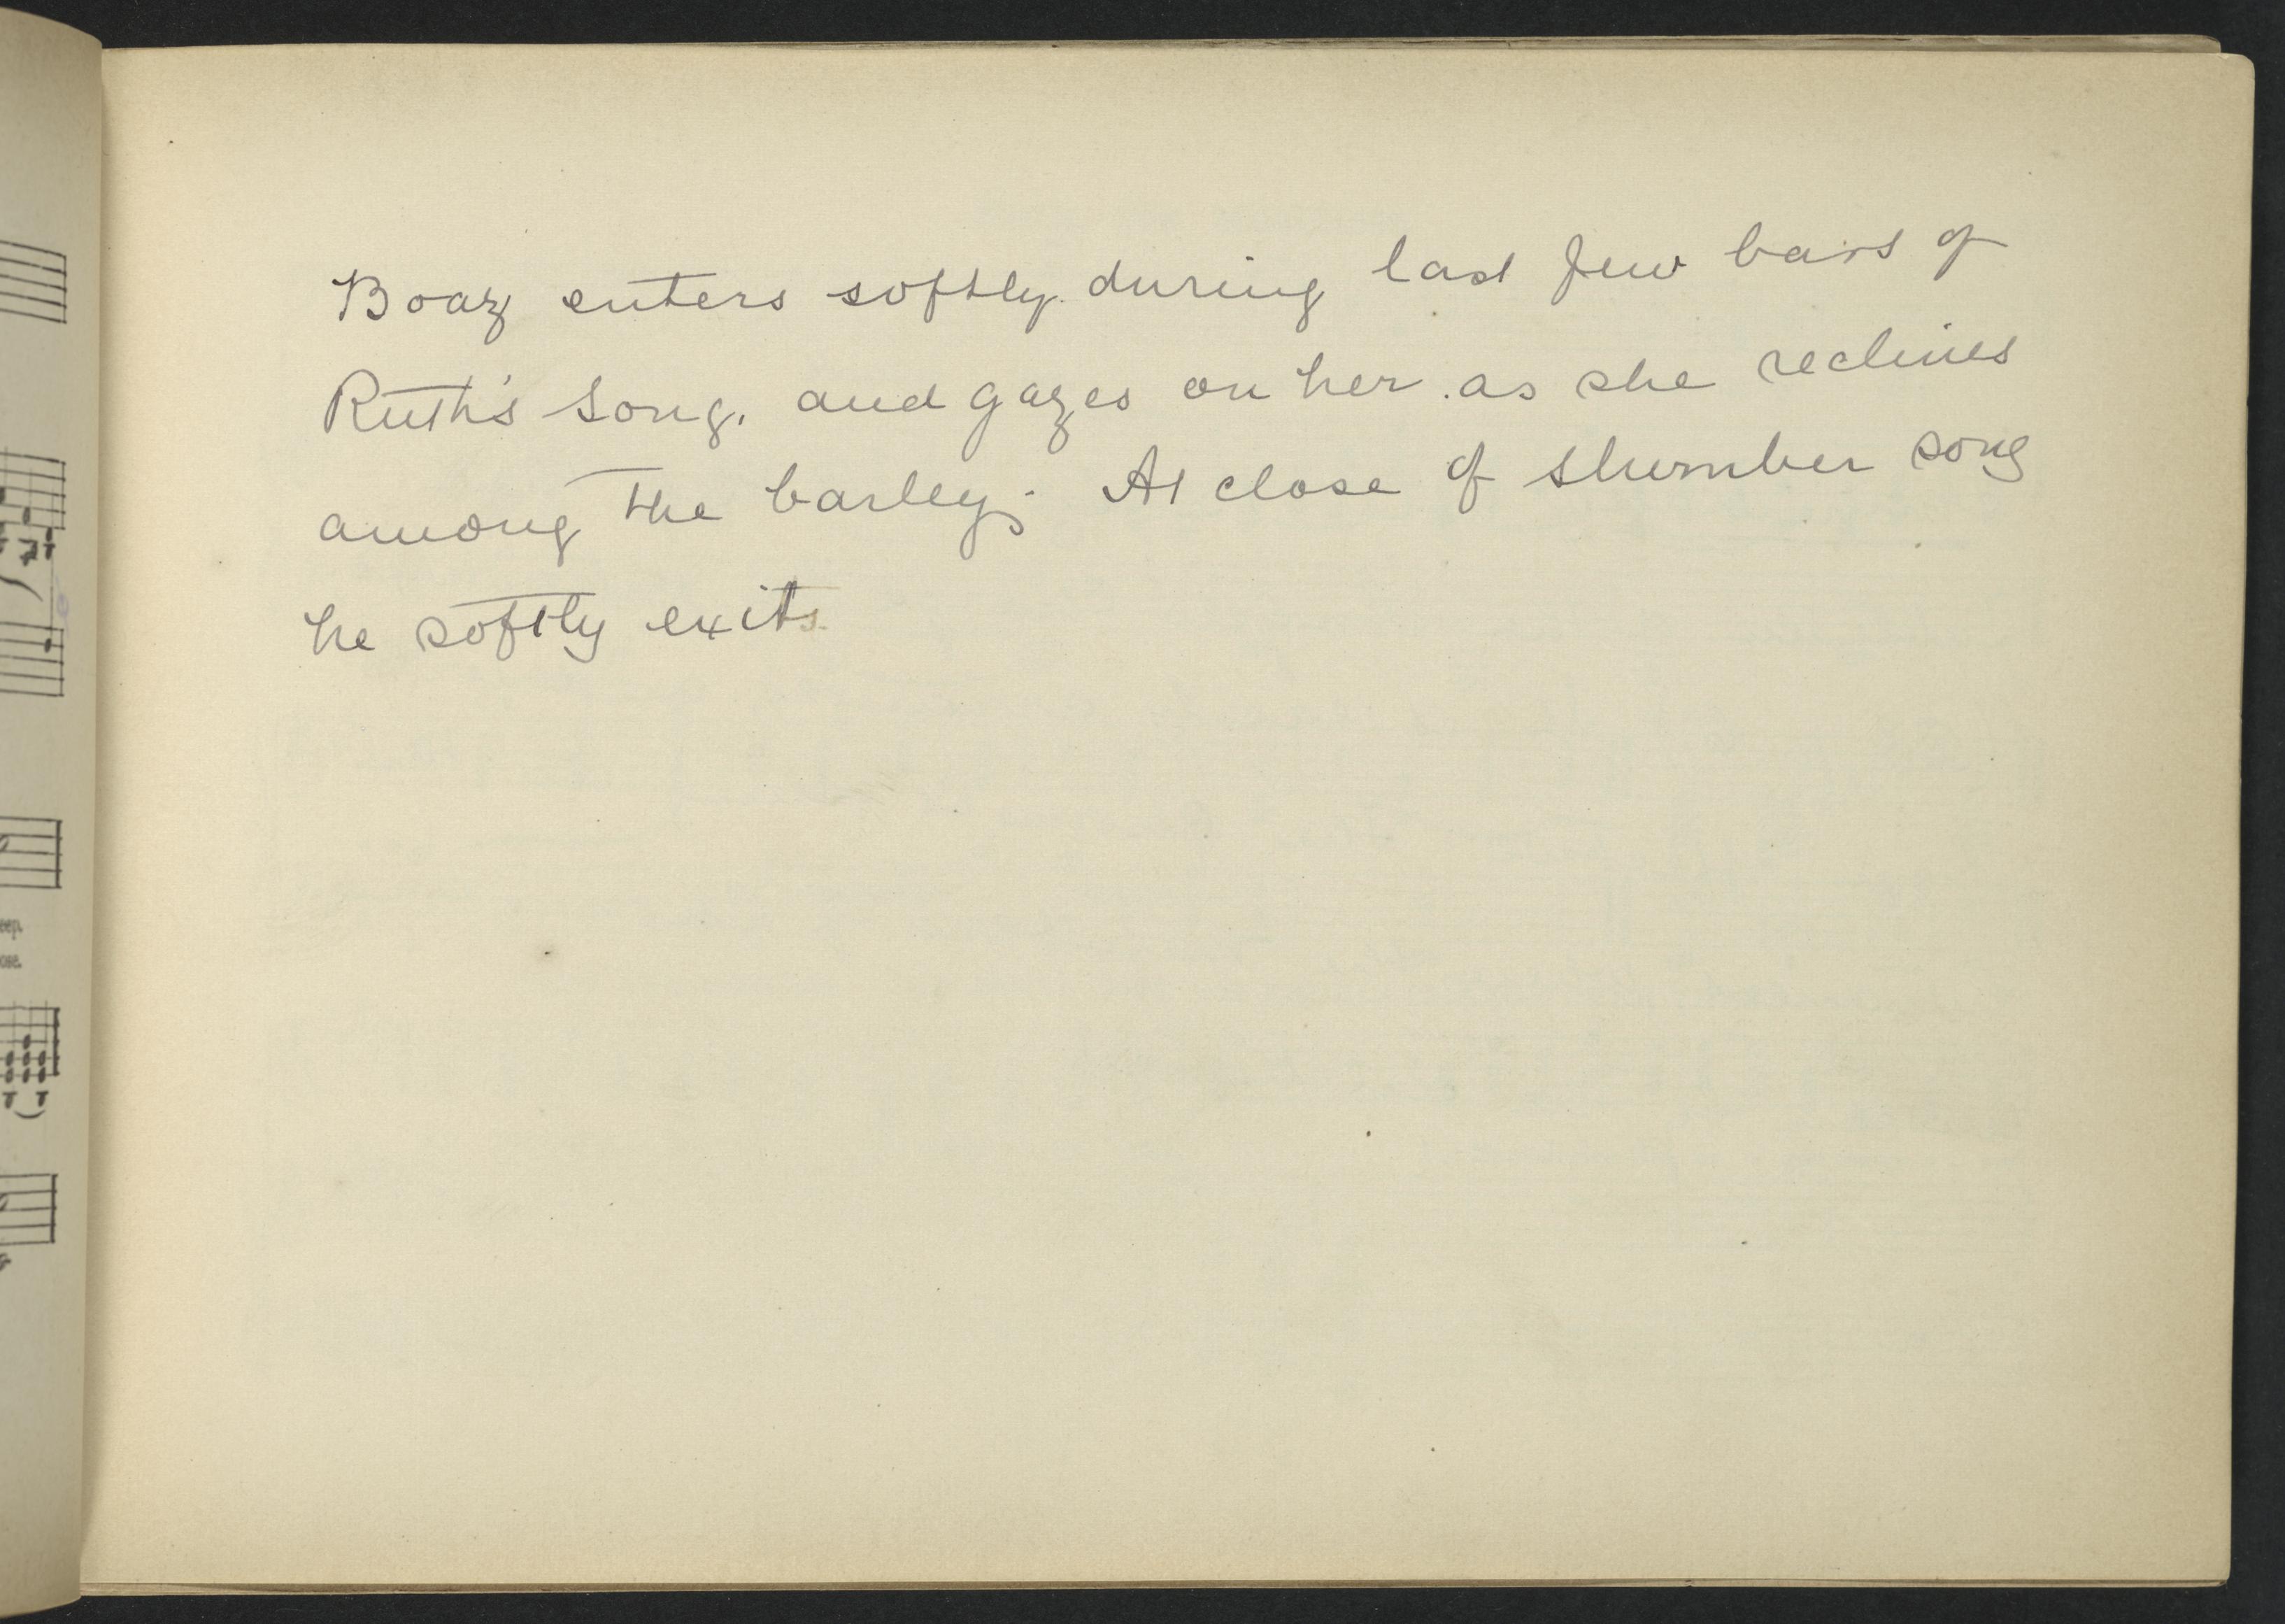 Boaz enters softly. during last few bars of
Ruth's song. and gazes on her. as she reclines
among the barley; At close of slumber song
he softly exits.
eep.
ose.